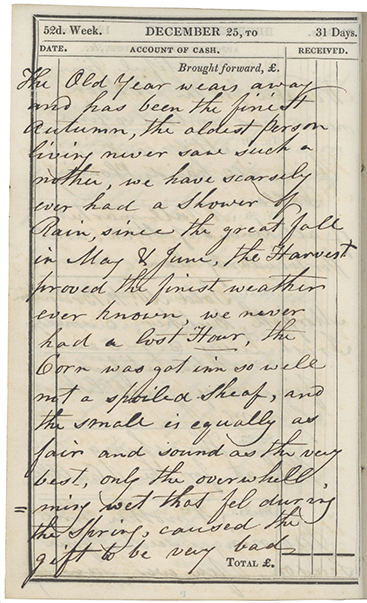 52d. Week. DECEMBER 25, TO 31 Days.
DATE. ACCOUNT OF CASH. RECEIVED.
Brought forward, £.
The Old Year wears away
and has been the finest
Autumn, the oldest person
living never saw such a
nother, we have scarsely
ever had a Shower of
Rain, since the great fall
in May & June, the Harvest
proved the finest weather
ever known, we never
had a lost Hour, the
Corn was got inn so well
not a spoiled Sheaf, and
the small is equally as
fair and sound as the very
best, only the overwhell
=ming wet that fel during
the Spring, caused the
gift to be very bad
TOTAL £.